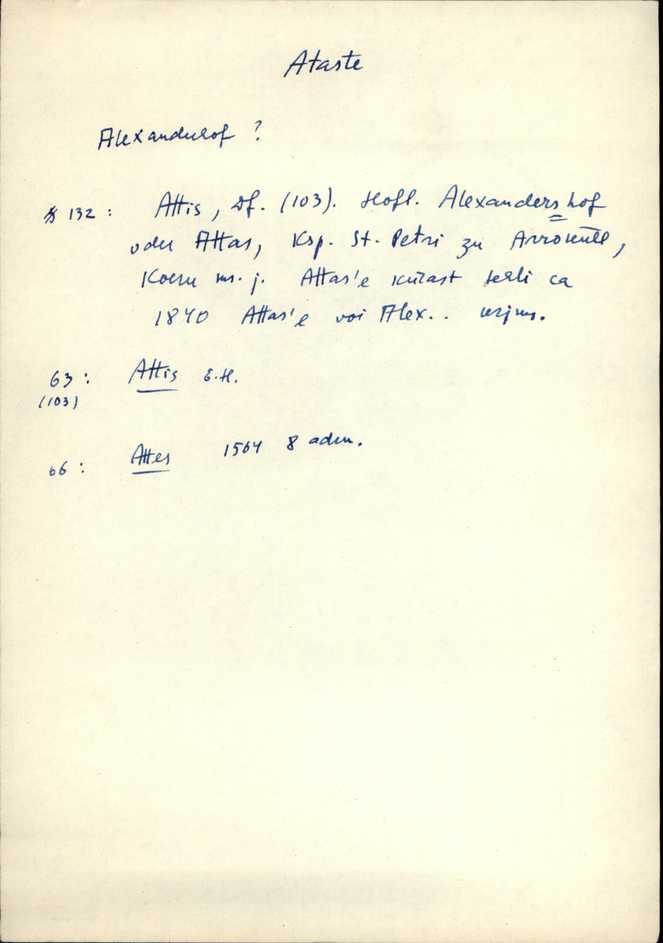 Ataste
Alexanderhof ?
§ 132 : Attis, Df. (103). Hofl. Alexandershof
oder Attas, Ksp. St. Petri zu Arroküll,
Koeru m. j. Attas'e külast sekli ca
1840 Attas'e voi Alex..
63 : Attis E.H.
(103)
66 : Attes 1564 8 adm.